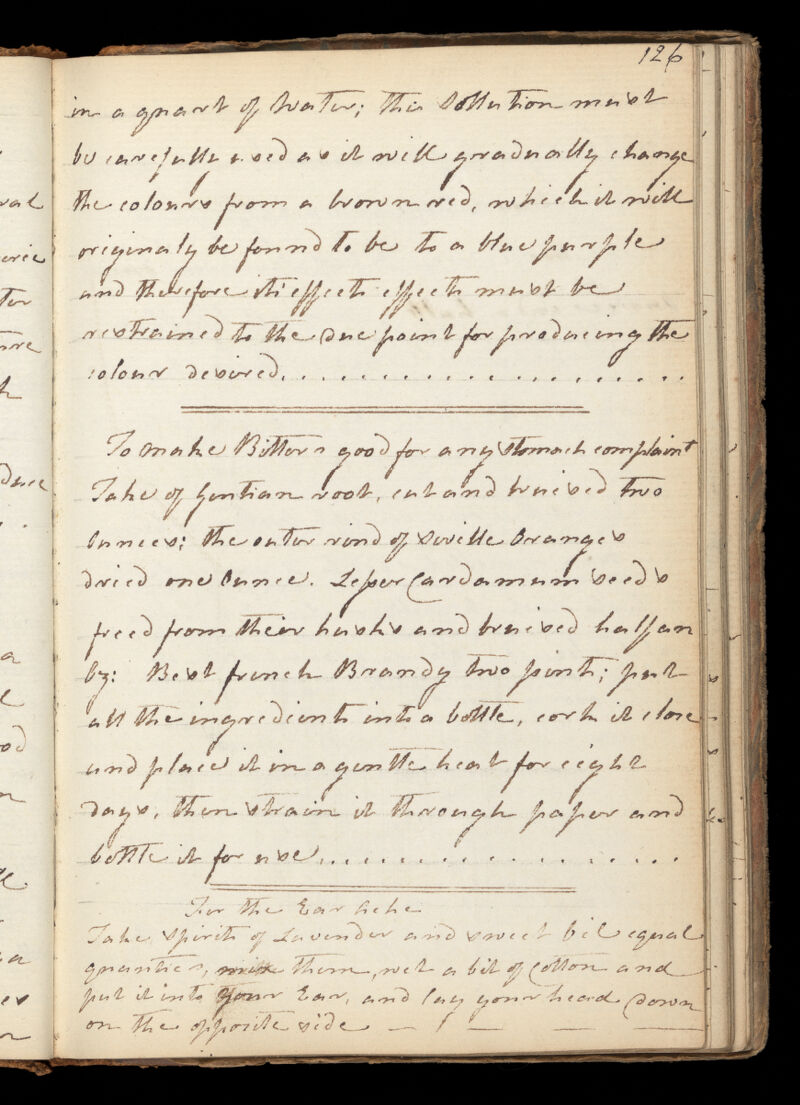 126
in a quart of Water; this Sollution must
be carefully used as it will gradually change
the colours from a brown red, which it will
originaly be found to be to a blue purple
and therefore its effects effects must be
restrained to the due point for producing the
colour desired......................
To make Bitters good for any stomach complaint
Take of Gentian root, cut and bruised two
Ounces: the outer rind of Siville Oranges
dried one Ounce. Lesser Cardamum seeds
freed from their husks and bruised half an
Oz: Best french Brandy two pints; put
all the ingredients into a bottle, cork it close
and place it in a gentle heat for eight
days, then strain it through paper and
bottle it for use....................
For the Ear Ache
Take Spirits of Lavender and sweet Oil equal
quanties, mix them, wet a bit of Cotton and
put it into your Ear, and lay your head down
on the opposite side — — — —